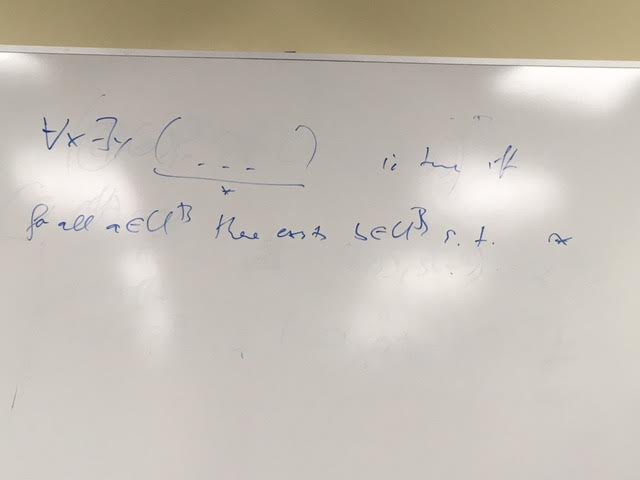 ∀x ∃y (. . .) is true iff
*
for all a ∈ U^𝔅 there exists b ∈ U^𝔅 s.t. *